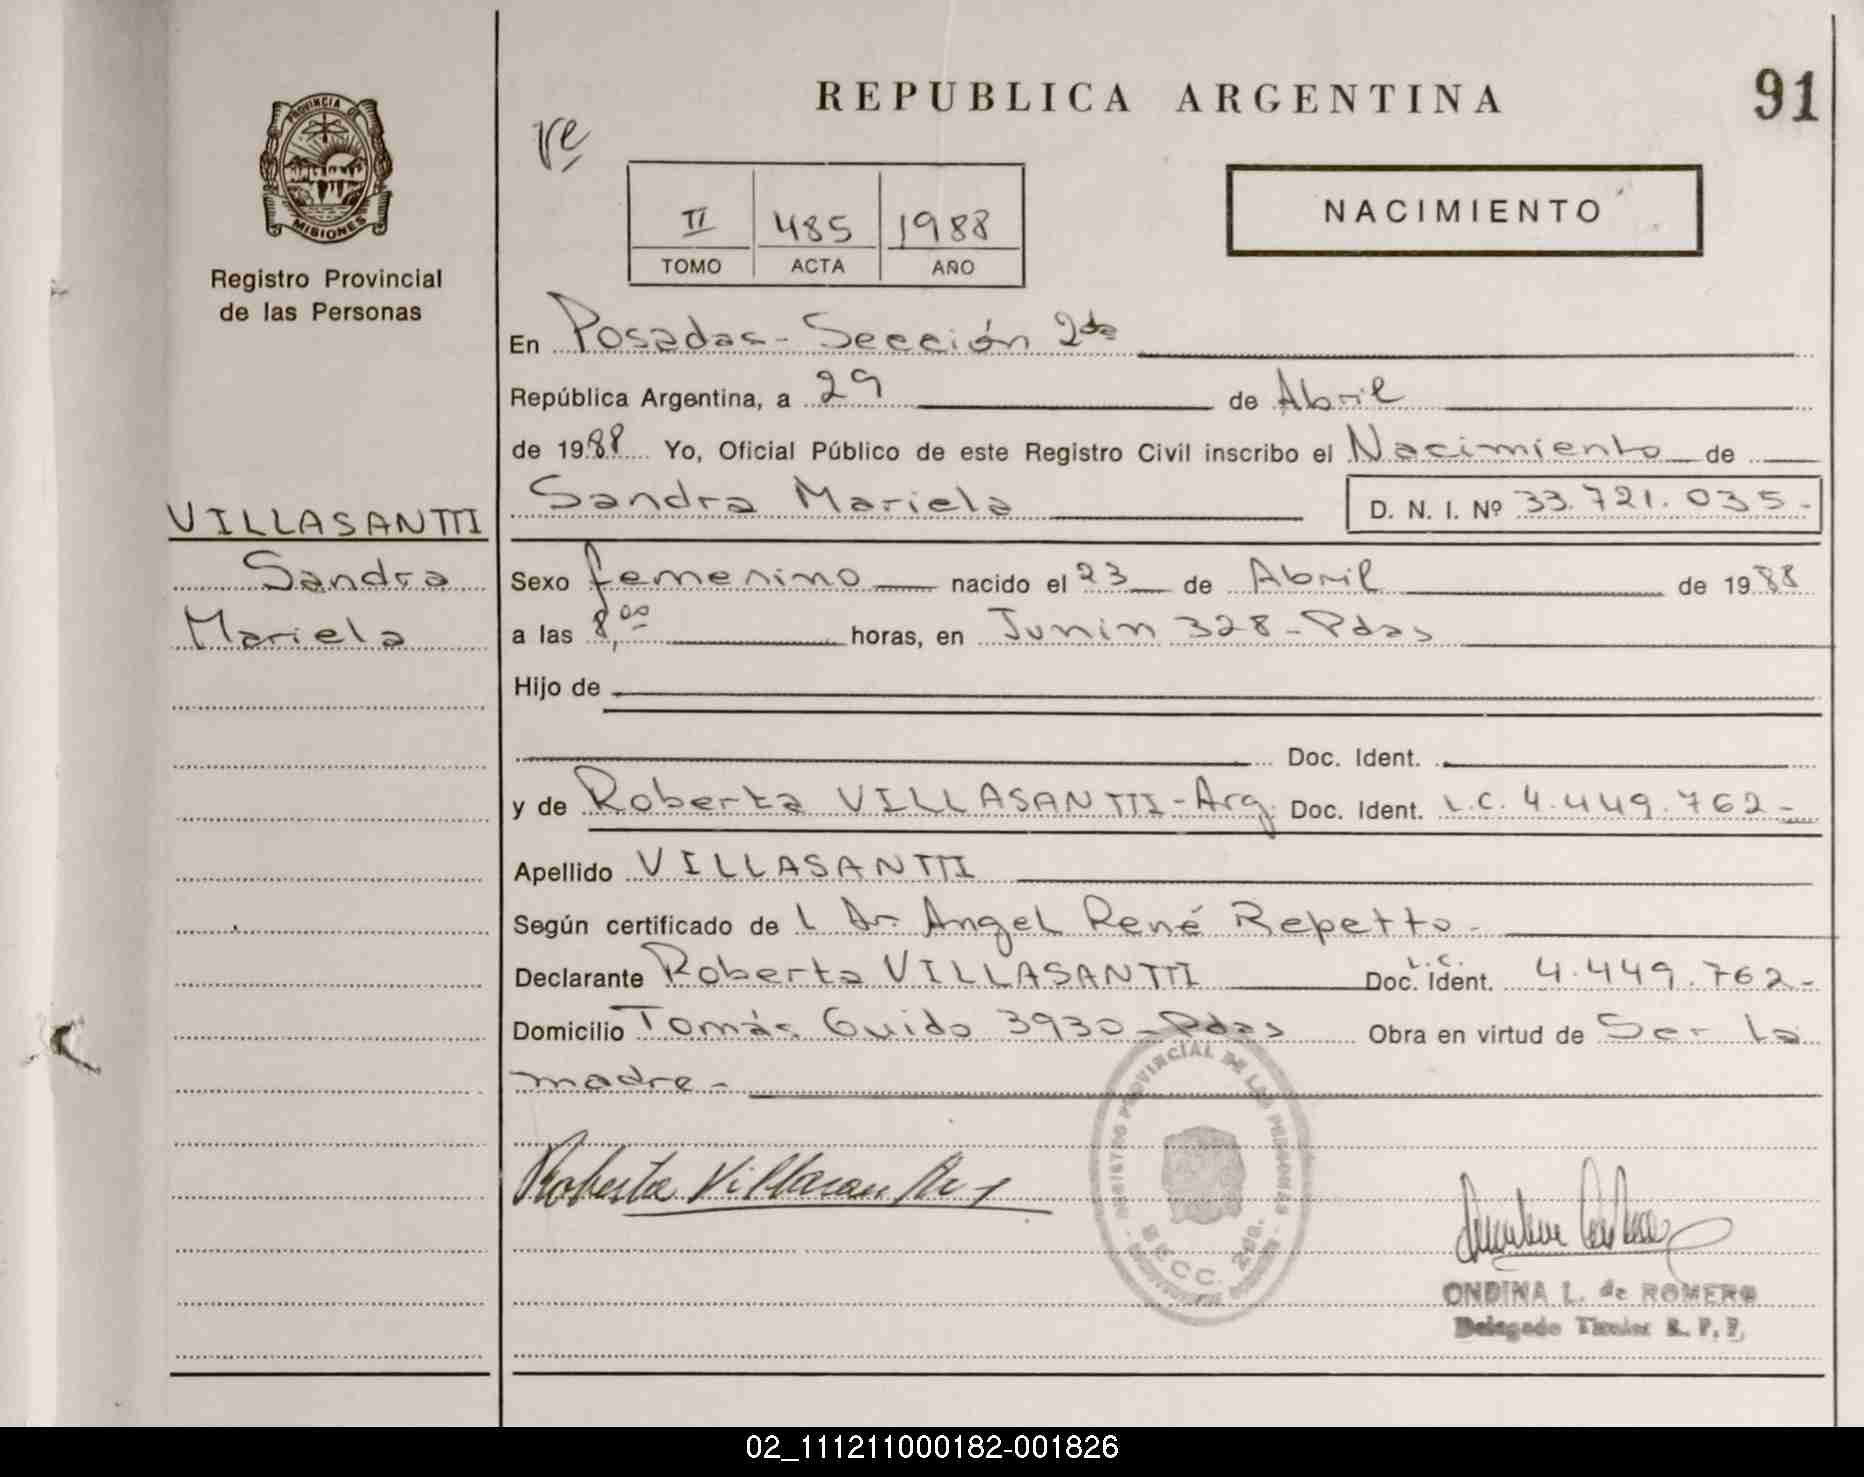 REPUBLICA ARGENTINA
91
PROVINCIA DE
MISIONES
Registro Provincial
de las Personas
II 485 1988
TOMO ACTA AÑO
NACIMIENTO
En Posadas - Sección 2da
República Argentina, a 29 de Abril
de 1988 Yo, Oficial Público de este Registro Civil inscribo el Nacimiento de
VILLASANTTI
Sandra
Mariela
Sandra Mariela D. N. I. Nº 33.721.035-
Sexo femenino nacido el 23 de Abril de 1988
a las 8,00 horas, en Junin 328 - Pdas
Hijo de
Doc. Ident.
y de Roberta VILLASANTTI - Arg. Doc. Ident. L.C. 4.449.762-
Apellido VILLASANTTI
Según certificado de l Dr. Angel René Repetto -
Declarante Roberta VILLASANTTI Doc. Ident. L.C. 4.449.762-
Domicilio Tomás Guido 3930 - Pdas Obra en virtud de Ser la
madre -
Roberta Villasantti
REGISTRO PROVINCIAL DE LAS PERSONAS
SECC. 2da.
ONDINA L. de ROMERO
Delegado Titular R. P. P.
02_111211000182-001826